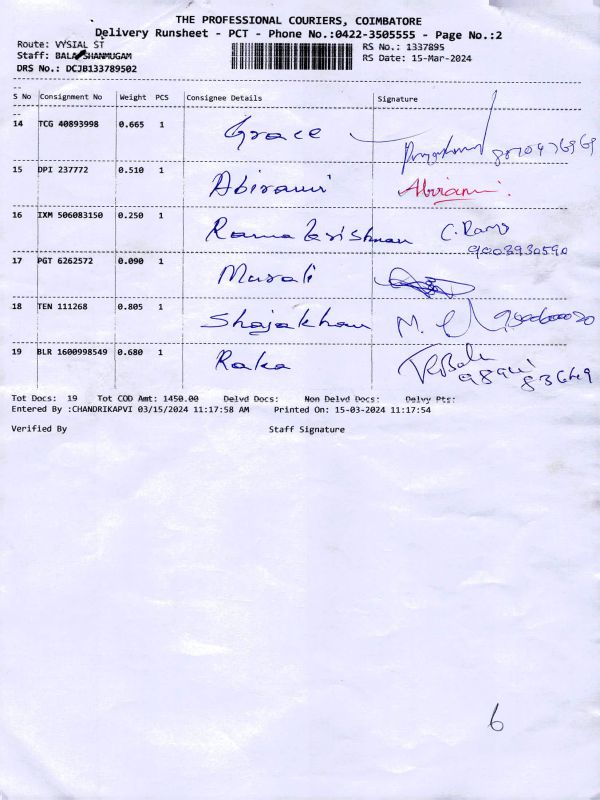 THE PROFESSIONAL COURIERS, COIMBATORE
Delivery Runsheet - PCT - Phone No.:0422-3505555 - Page No.:2
Route: VYSIAL ST
RS No.: 1337895
Staff: BALA SHANMUGAM
RS Date: 15-Mar-2024
DRS No.: DCJB133789502
S No Consignment No Weight PCS Consignee Details Signature
14 TCG 40893998 0.665 1 Grace
15 DPI 237772 0.510 1 Abirami Abirami
16 IXM 506083150 0.250 1 Rama krishnan C. Rams
9003930590
17 PGT 6262572 0.090 1 Murali
18 TEN 111268 0.805 1 Shajakhan M.
19 BLR 1600998549 0.680 1 Raka
Tot Docs: 19 Tot COD Amt: 1450.00 Delvd Docs: Non Delvd Docs: Delvy Pts:
Entered By :CHANDRIKAPVI 03/15/2024 11:17:58 AM Printed On: 15-03-2024 11:17:54
Verified By Staff Signature
6